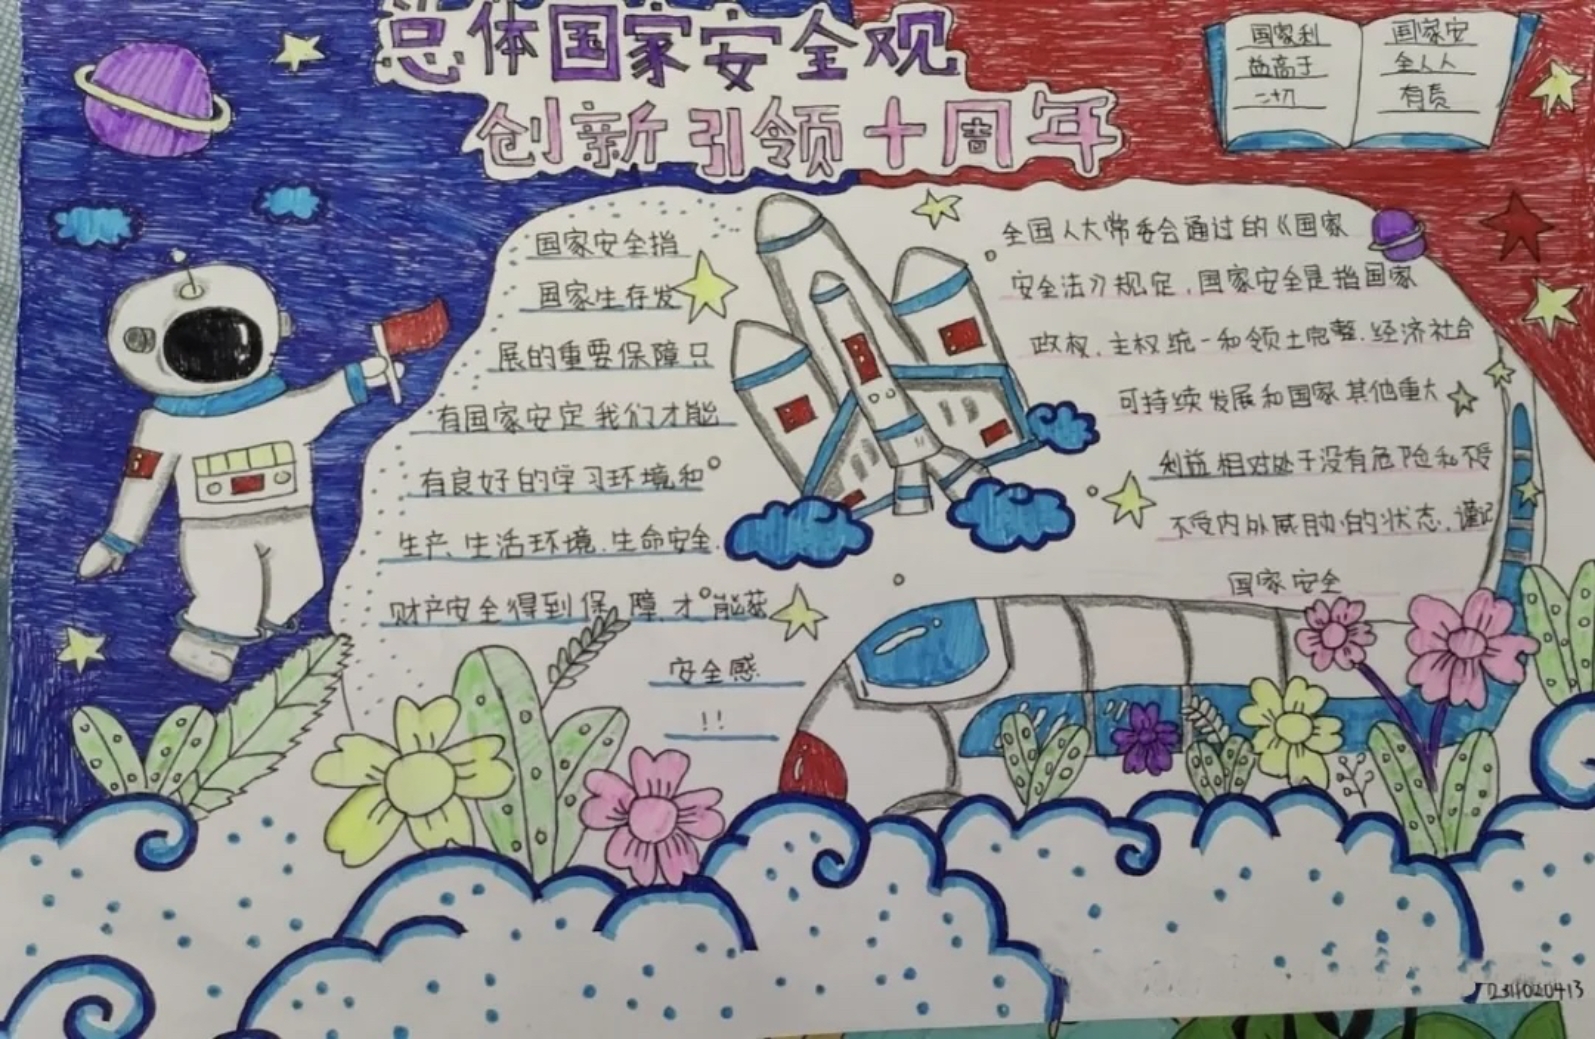 总体国家安全观
创新引领十周年
国家利
益高于
一切
国家安
全人人
有责
国家安全指
国家生存发
展的重要保障只
有国家安定我们才能
有良好的学习环境和
生产、生活环境.生命安全.
财产安全得到保障.才能获
安全感.
!!
全国人大常委会通过的《国家
安全法》规定,国家安全是指国家
政权.主权统一和领土完整.经济社会
可持续发展和国家其他重大
利益相对处于没有危险和不受
不受内外威胁的状态.谨记
国家安全